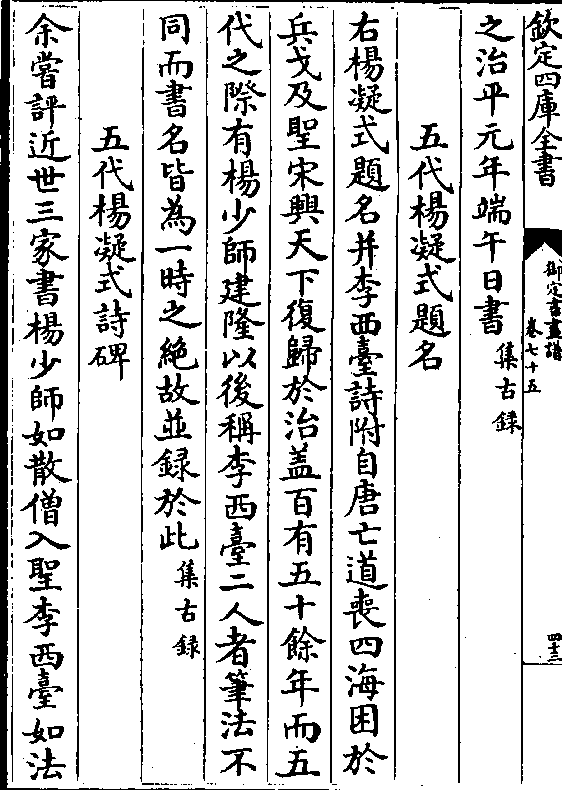 欽定四庫全書
御定書畫譜
卷七十五
四十三
之治平元年端午日書集古錄
五代楊凝式題名
右楊凝式題名并李西臺詩附自唐亡道喪四海困於
兵戈及聖宋興天下復歸於治盖百有五十餘年而五
代之際有楊少師建隆以後稱李西臺二人者筆法不
同而書名皆為一時之絶故並録於此集古録
五代楊凝式詩碑
余嘗評近世三家書楊少師如散僧入聖李西臺如法